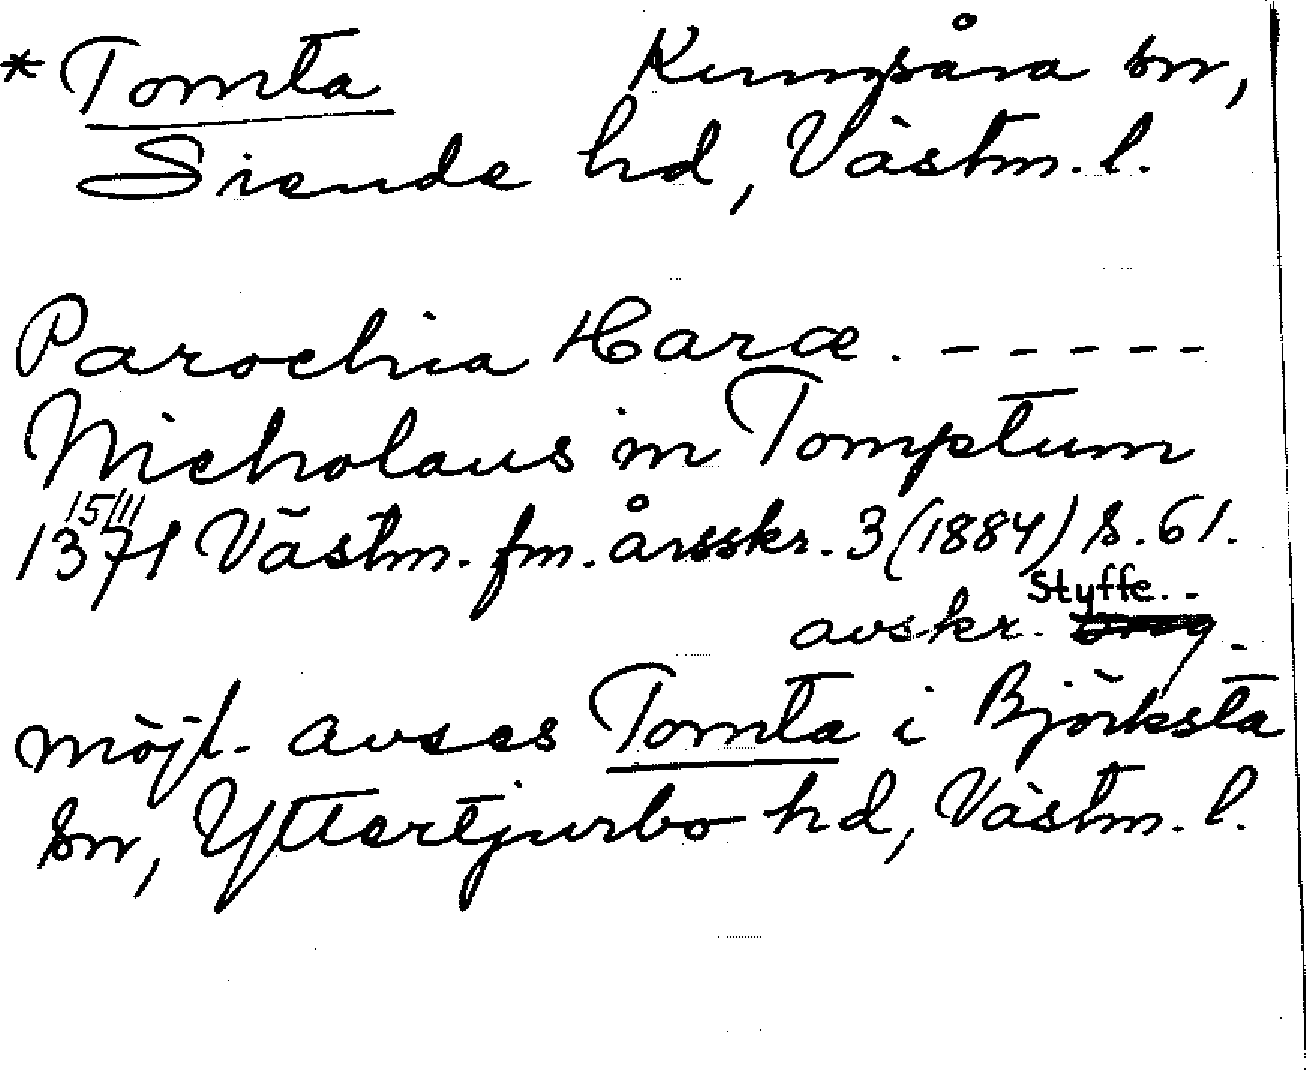 * Tomta Kungsåra sn,
Siende hd, Västm. l.
Parochia Haræ. - - - - -
Nicholaus in Tomptum
15/III
1371 Västm. fm. årsskr. 3 (1884) s. 61.
Styffe. -
avskr.
möjl. avses Tomta i Björksta
sn, Yttertjurbo hd, Västm. l.